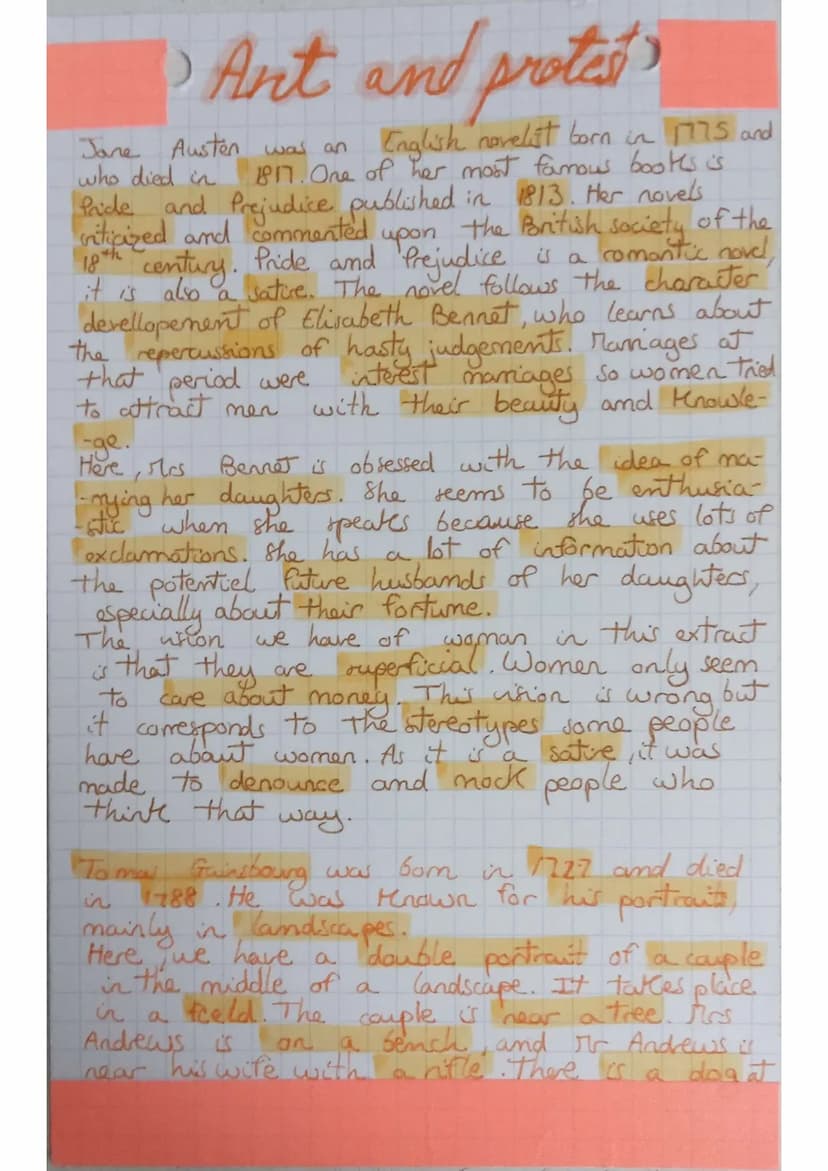 Art and protest
Jane Austen was an English novelist born in 1775 and
who died in 1817. One of her most famous books is
Pride and Prejudice published in 1813. Her novels
criticized and commented upon the British society of the
18th century. Pride and Prejudice is a romantic novel,
it is also a satire. The novel follows the character
devellopement of Elisabeth Bennet, who learns about
the repercussions of hasty judgements. Marriages at
that period were interest marriages so women tried
to attract men with their beauty and knowle-
-ge.
Here, Mrs Bennet is obsessed with the idea of ma-
-rrying her daughters. She seems to be enthusia-
-stic when she speaks because she uses lots of
exclamations. She has a lot of information about
the potentiel future husbands of her daughters,
especially about their fortune.
The vision we have of woman in this extract
is that they are superficial. Women only seem
to care about money. This vision is wrong but
it corresponds to the stereotypes some people
have about women. As it is a satire, it was
made to denounce and mock people who
think that way.
Tomas Gainsbourg was born in 1727 and died
in 1788. He was known for his portraits,
mainly in landscapes.
Here, we have a double portrait of a couple
in the middle of a landscape. It takes place
in a field. The couple is near a tree. Mrs
Andrews is on a bench, and Mr Andrews is
near his wife with a rifle. There is a dog at